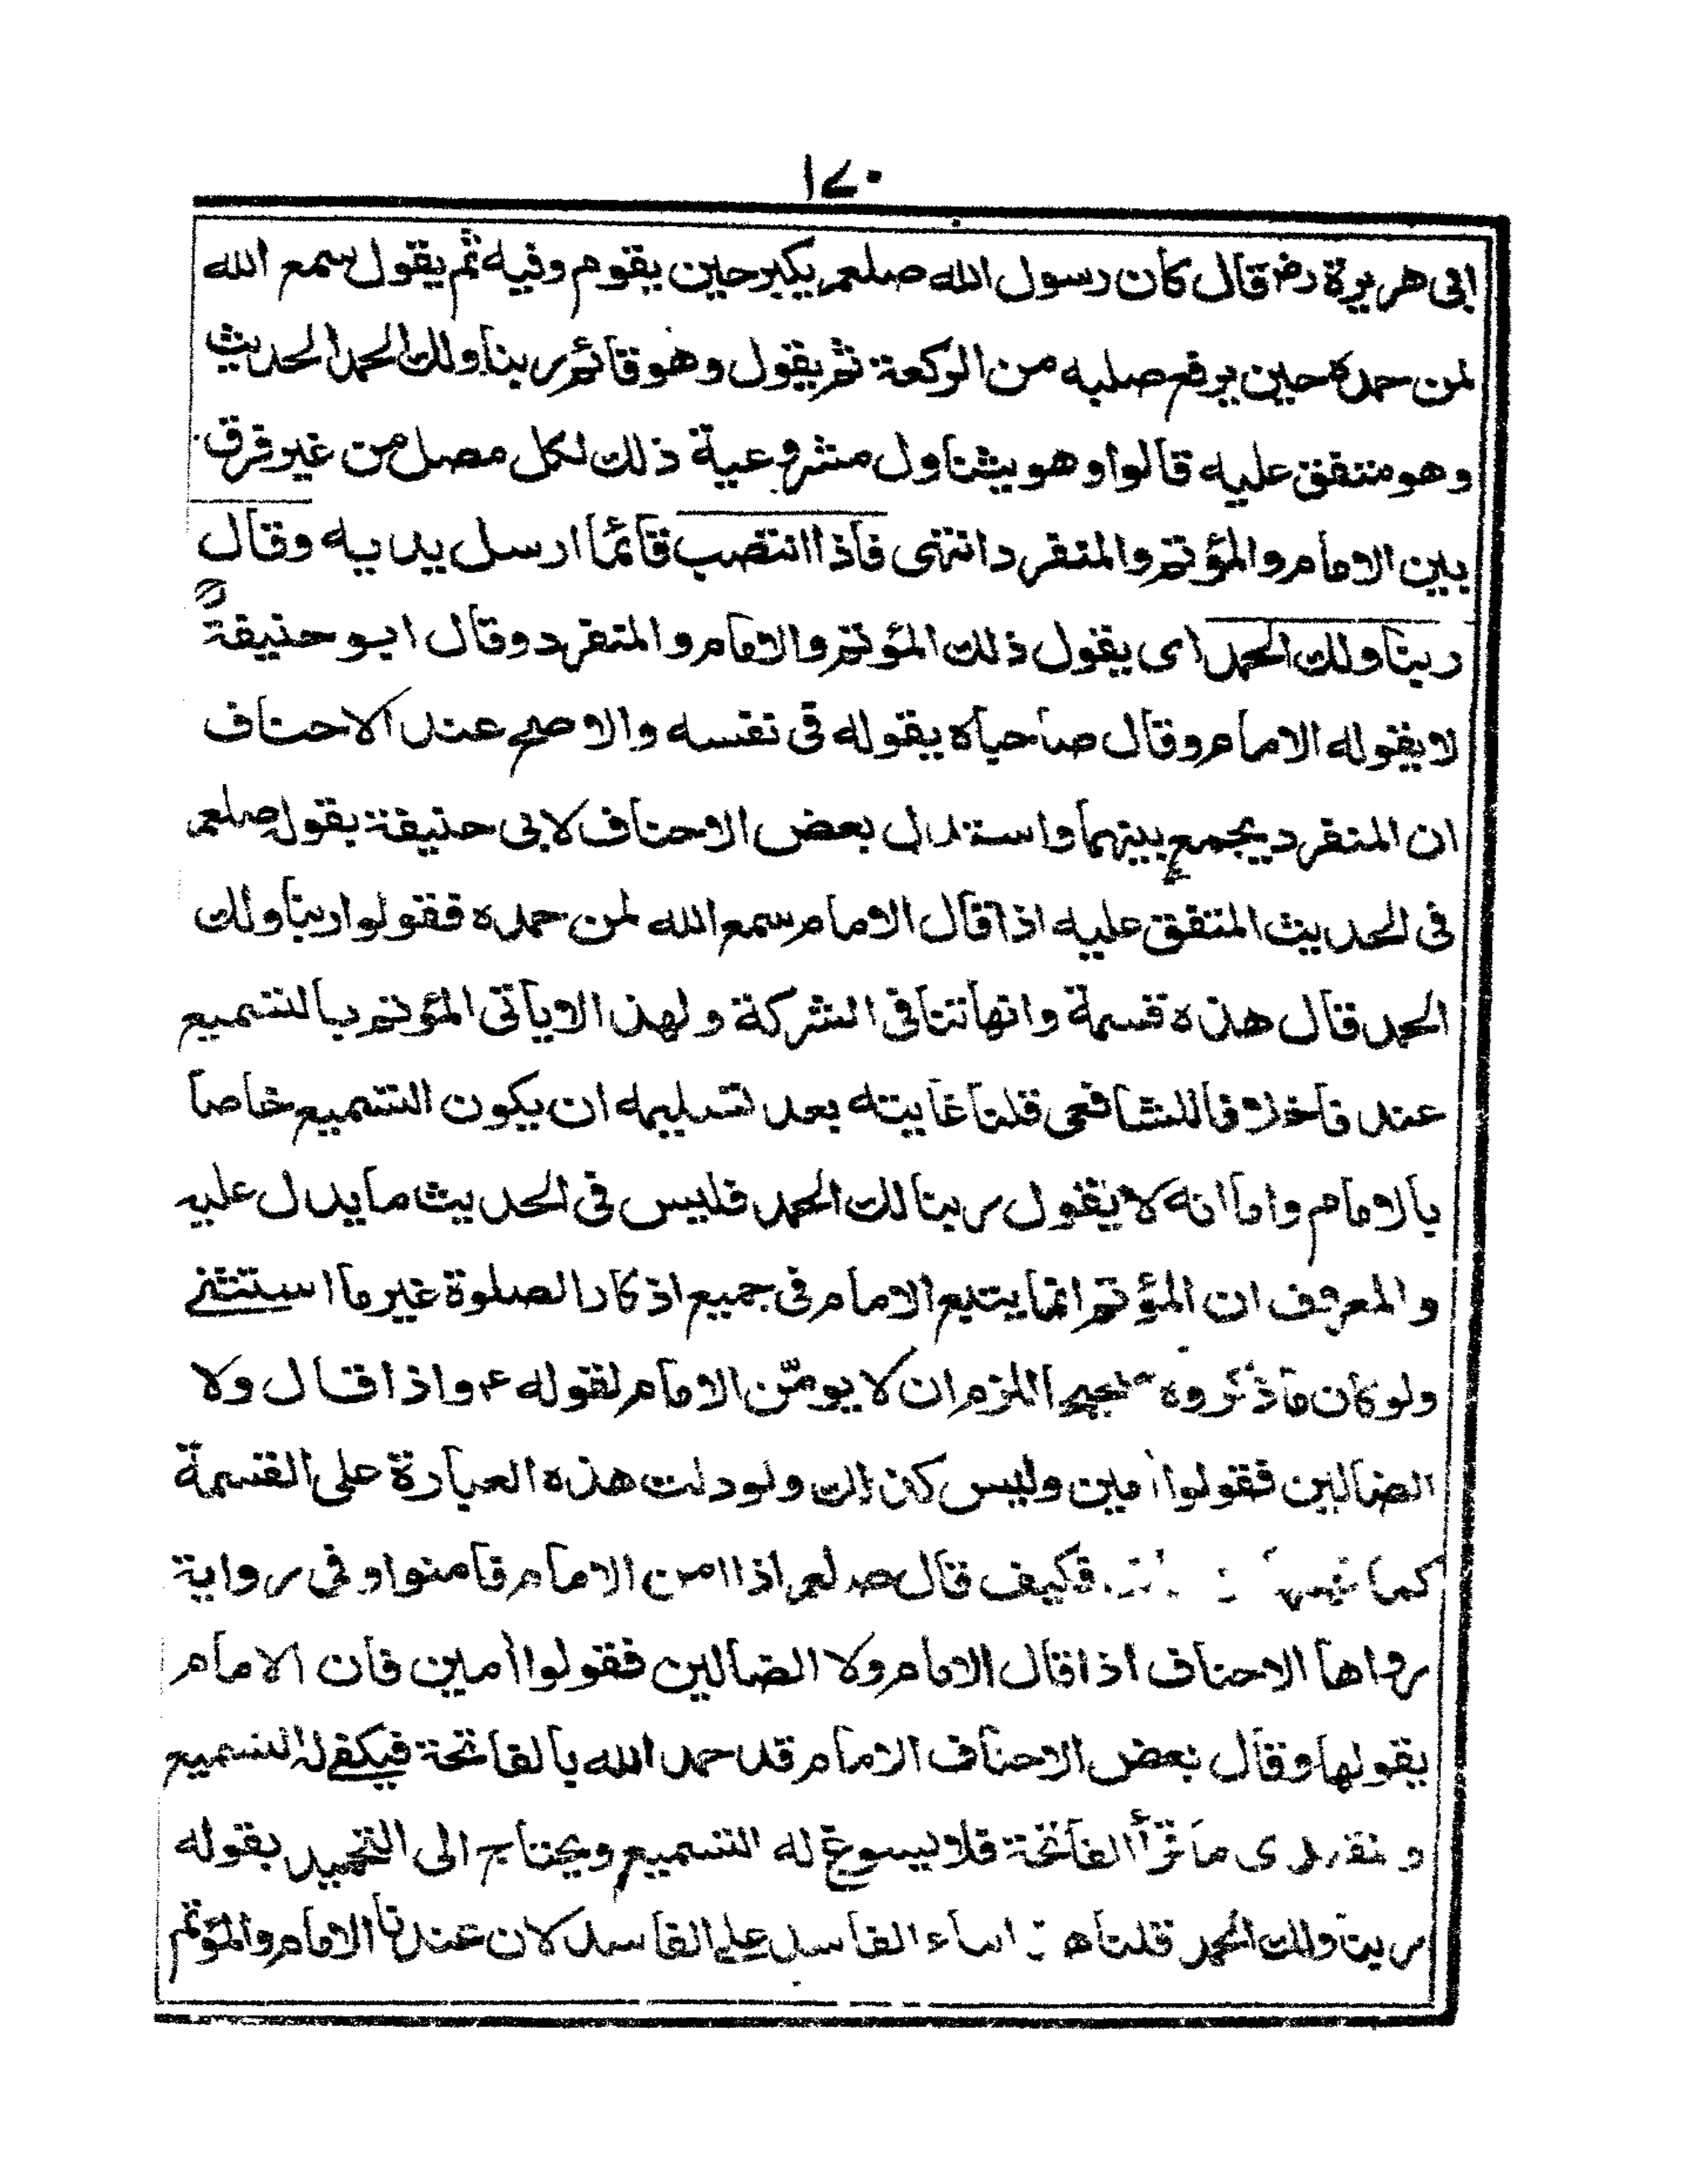 ١٤٠
ابى هريرة رض قال كان رسول الله صلعم يكبر حين يقوم وفيه ثم يقول سمع الله
لمن حمده حين يرفع صلبه من الركعة ثم يقول وهو قائم ربنا ولك الحمد الحديث
وهو متفق عليه قالوا وهو يتناول مشروعية ذلك لكل مصل من غير فرق
بين الامام والمؤتم والمنفرد انتهى فاذا انتصب قائما ارسل يديه وقال
ربنا ولك الحمد اى يقول ذلك المؤتم والامام والمنفرد وقال ابو حنيفة
لا يقوله الامام وقال صاحباه يقوله فى نفسه والاصح عند الاحناف
ان المنفرد يجمع بينهما واستدل بعض الاحناف لابى حنيفة بقوله صلعم
فى الحديث المتفق عليه اذا قال الامام سمع الله لمن حمده فقولوا ربنا ولك
الحمد قال هذه قسمة وانها تنافى الشركة ولهذا لا ياتى المؤتم بالتسميع
عند ناخلافا للشافعى قلنا غايته بعد تسليمه ان يكون التسميع خاصا
بالامام واما انه لا يقول ربنا لك الحمد فليس فى الحديث ما يدل عليه
والمعروف ان المؤتم انما يتبع الامام فى جميع اذكار الصلوة غير ما استثنے
ولو كان ما ذكروه صحيحا للزم ان لا يومّن الامام لقوله ع واذا قال ولا
الضالين فقولوا امين وليس كذلك ولو دلت هذه العبارة على القسمة
كما فكيف قال صلعم اذا امن الامام فامنوا وفى رواية
رواها الاحناف اذا قال الامام ولا الضالين فقولوا أمين فان الامام
يقولها وقال بعض الاحناف الامام قد حمد الله بالفاتحة فيكفے له التسميع
و ما قرأ الفاتحة فلا يسوغ له التسميع ويحتاج الى التحميد بقوله
ربنا ولك الحمد قلنا بناء الفاسد على الفاسد لان عندنا الامام والمؤتم